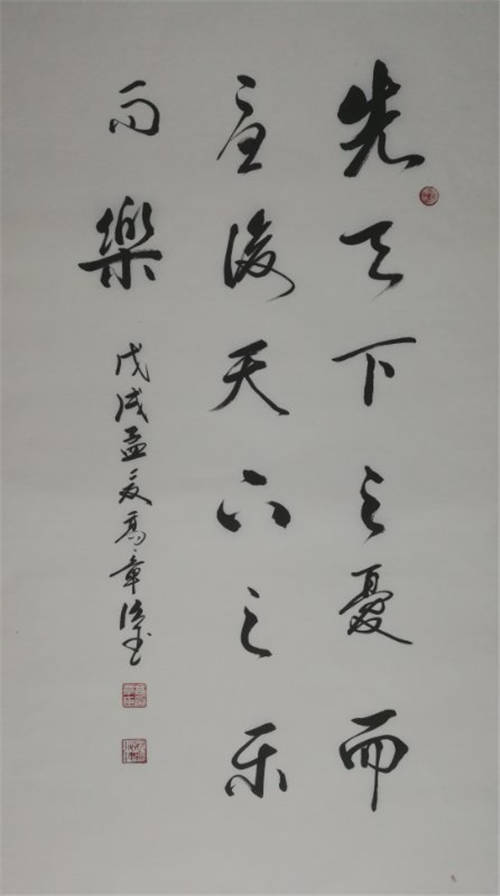 先天下之憂而
憂後天下之乐
而樂
戊戌孟夏高章